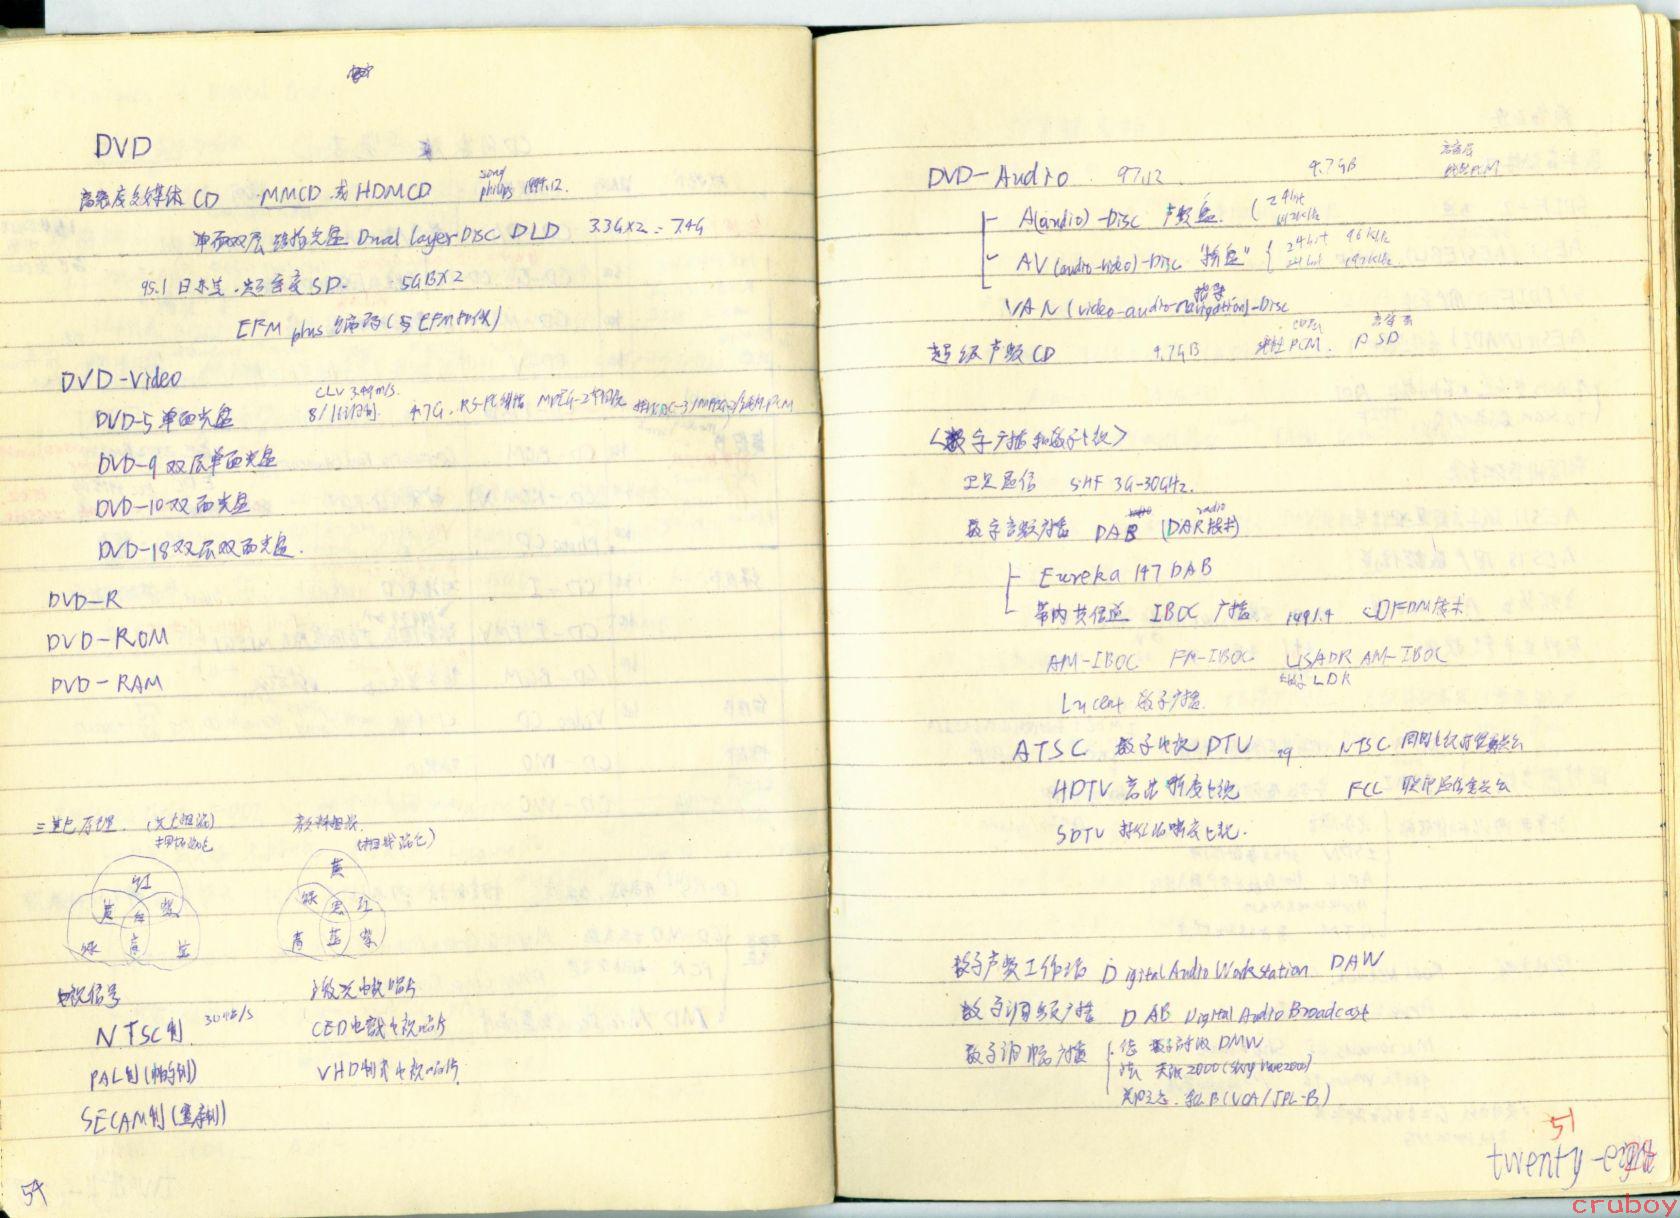 DVD
高密度多媒体 CD MMCD 或 HDMCD sony philips 1994.12.
单面双层 光盘 Dual layer Disc DLD 3.7G×2 = 7.4G
95.1 日东芝 超密度 SD. 5GB×2
EFM plus 编码(与EFM相似)
DVD-Video
CLV 3.49m/s.
DVD-5 单面光盘 8/16调制 4.7G. RS-PC纠错 MPEG-2
DVD-9 双层单面光盘
DVD-10 双面光盘
DVD-18 双层双面光盘.
DVD-R
DVD-ROM
DVD-RAM
三基色原理. 
相加混色
(相减混色)
红
黄 白 紫
绿 青 蓝
黄
绿 黑 红
青 蓝 紫
电视信号
NTSC制 30帧/s
PAL制(帕尔制)
SECAM制(塞康制)
激光电视唱片
CED电容电视唱片
VHD制式电视唱片.
54
DVD-Audio 97.12 4.7GB
A(audio)-Disc 声频盘. 24bit 192kHz
AV(audio-video)-Disc 24bit 96kHz
24bit 192kHz
VAN(video-audio-navigation)-Disc
超级声频CD 4.7GB 线性PCM. DSD
<数字广播和数字电视>
卫星通信 SHF 3G-30GHz.
数字音频广播 DAB (DAR技术)
radio
Eureka 147 DAB
带内共信道 IBOC 广播 1991.4
AM-IBOC FM-IBOC USADR AM-IBOC
LDR
Lucent 数字广播.
ATSC 数字电视 DTV NTSC
HDTV 高清晰度电视 FCC 联邦通信委员会
SDTV 标准清晰度电视.
数字声频工作站 Digital Audio Workstation DAW
数字调频广播 DAB Digital Audio Broadcast
数字调幅广播
德 DMW
法 天波2000(Sky wave2000)
美国之音. (VOA/JPL-B)
51
twenty-eight
cruboy